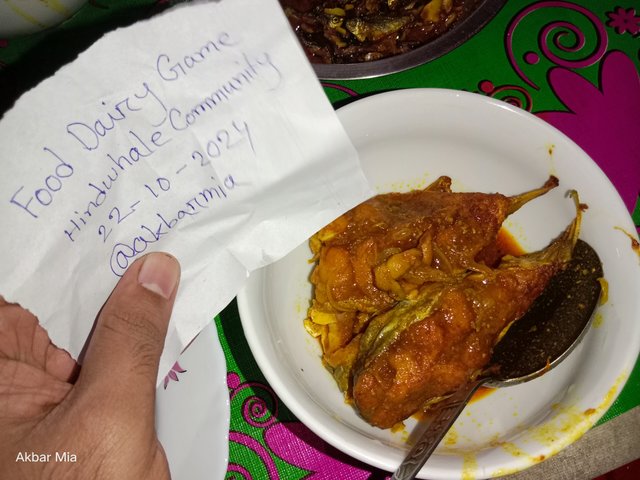 Food Dairy Game
Hindwhale Community
22-10-2024
@akbarmia
Akbar Mia